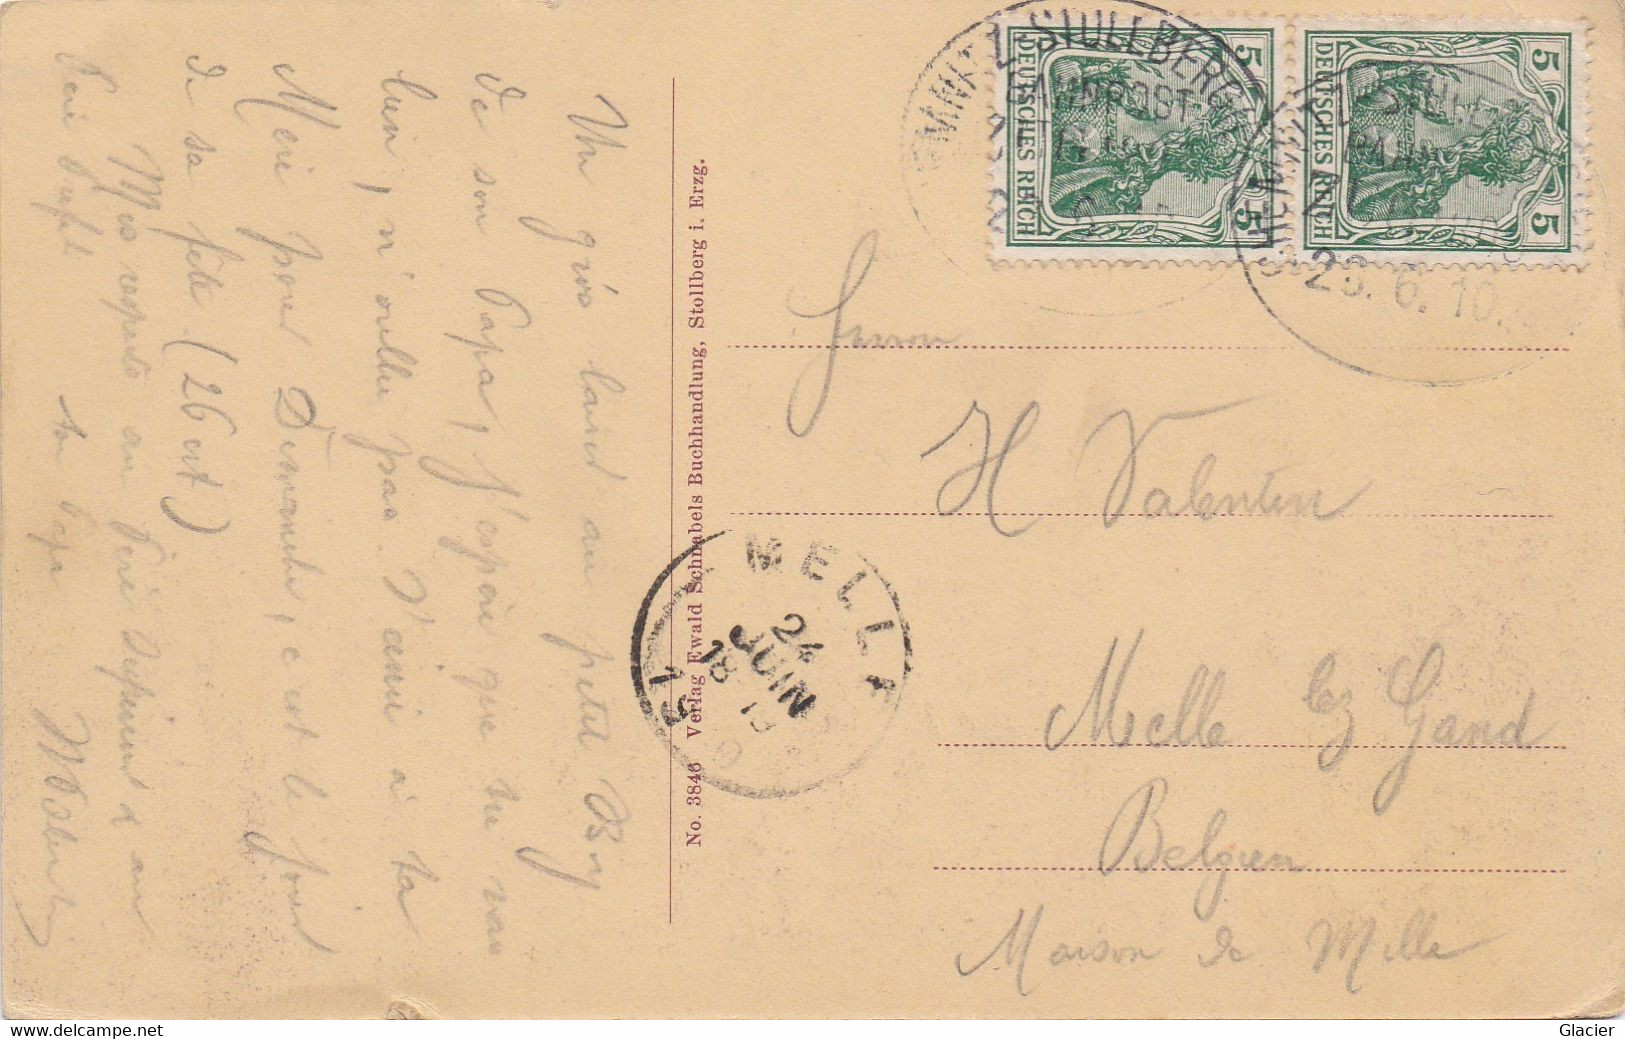 Un gros baiser au petit Boy
de son Papa, j'espère que tu vas
bien, n'oublie pas d'écrire à ta
Mère pour Dimanche, c'est le jour
de sa fête (26 ct)
Mes respects au Père Supérieur & au
Père Préfet
ton Papa
No. 3846 Verlag Ewald Schnabels Buchhandlung, Stollberg i. Erzg.
DEUTSCHES REICH
5 5
DEUTSCHES REICH
5 5
STOLLBERG
BAHNPOST
23. 6. 10.
MELLE
24
JUIN
18
19
Herrn
H Valentin
Melle lez Gand
Belgien
Maison de Melle
delcampe.net
Glacier